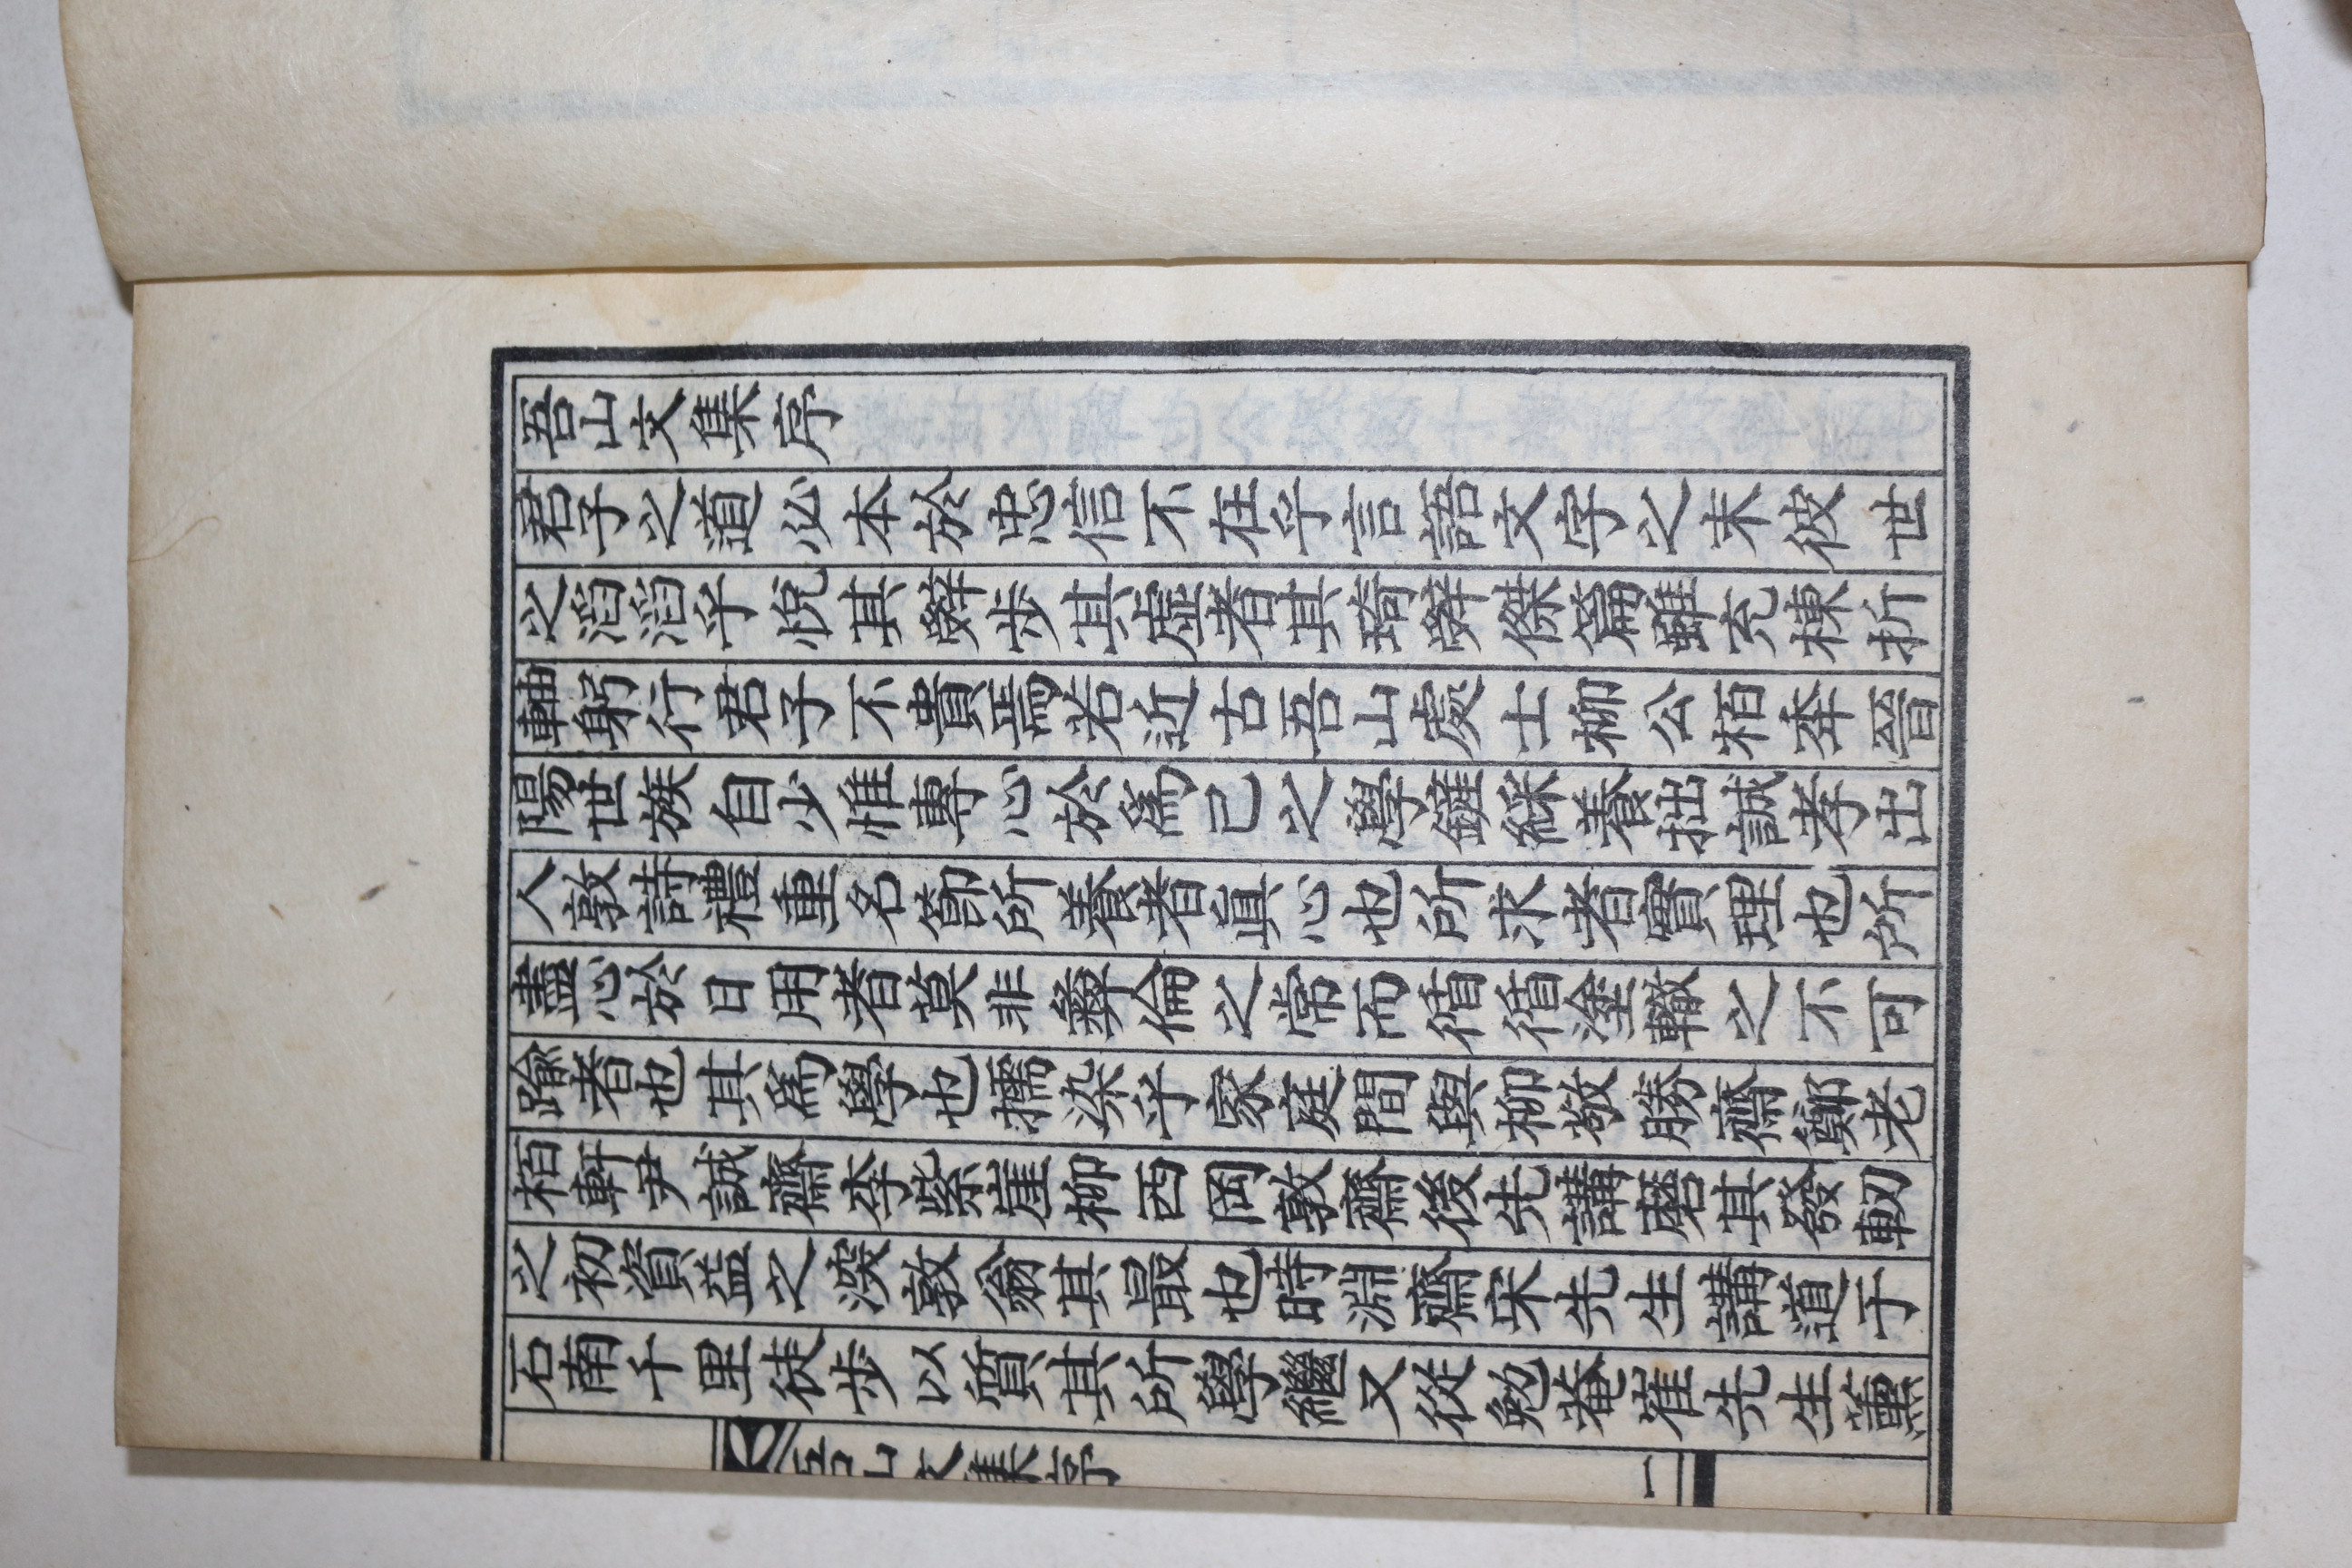 吾山文集序
君子之道必本於忠信不在乎言語文字之末彼世
之滔滔乎悅其辭步其虛者其琦辭傑篇雖充棟折
軸躬行君子不貴焉若近古吾山處士柳公栢奉晉
陽世族自少惟專心於爲己之學鏟綵養拙誠孝出
人敦詩禮重名節所養者眞心也所求者實理也所
盡心於日用者莫非彝倫之常而循循塗轍之不可
踰者也其爲學也擩染乎家庭間與柳敬勝齋鄭老
栢軒尹誠齋李紫崖柳西岡敦齋後先講磨其發軔
之初資益之深敦翁其最也時淵齋宋先生講道于
石南千里徒步以質其所學繼又從勉菴崔先生薰
吾山文集序 一